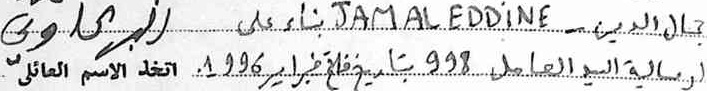 جمال الدين - JAMAL EDDINE بناء على
ارسالية السيد العامل 998 بتاريخ فاتح فبراير 1996. اتخذ الاسم العائلي